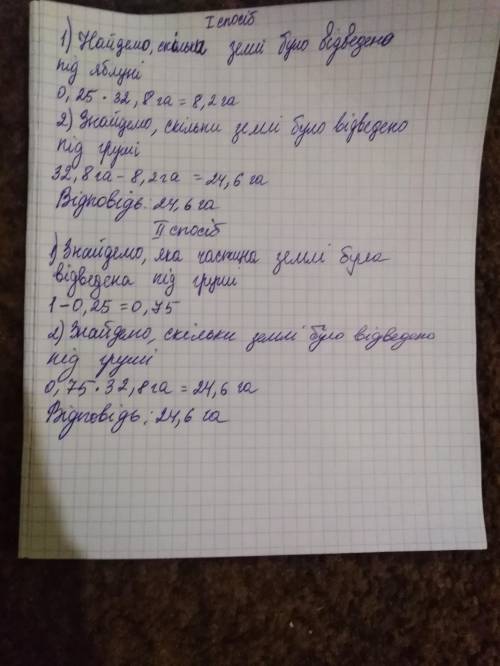 I спосіб
1) Найдемо, скільки землі було відведено
під яблуні
0,25 · 32,8 га = 8,2 га
2) Знайдемо, скільки землі було відведено
під груші
32,8 га - 8,2 га = 24,6 га
Відповідь. 24,6 га
II спосіб
1) Знайдемо, яка частина землі була
відведена під груші
1 - 0,25 = 0,75
2) Знайдемо, скільки землі було відведено
під груші
0,75 · 32,8 га = 24,6 га
Відповідь: 24,6 га